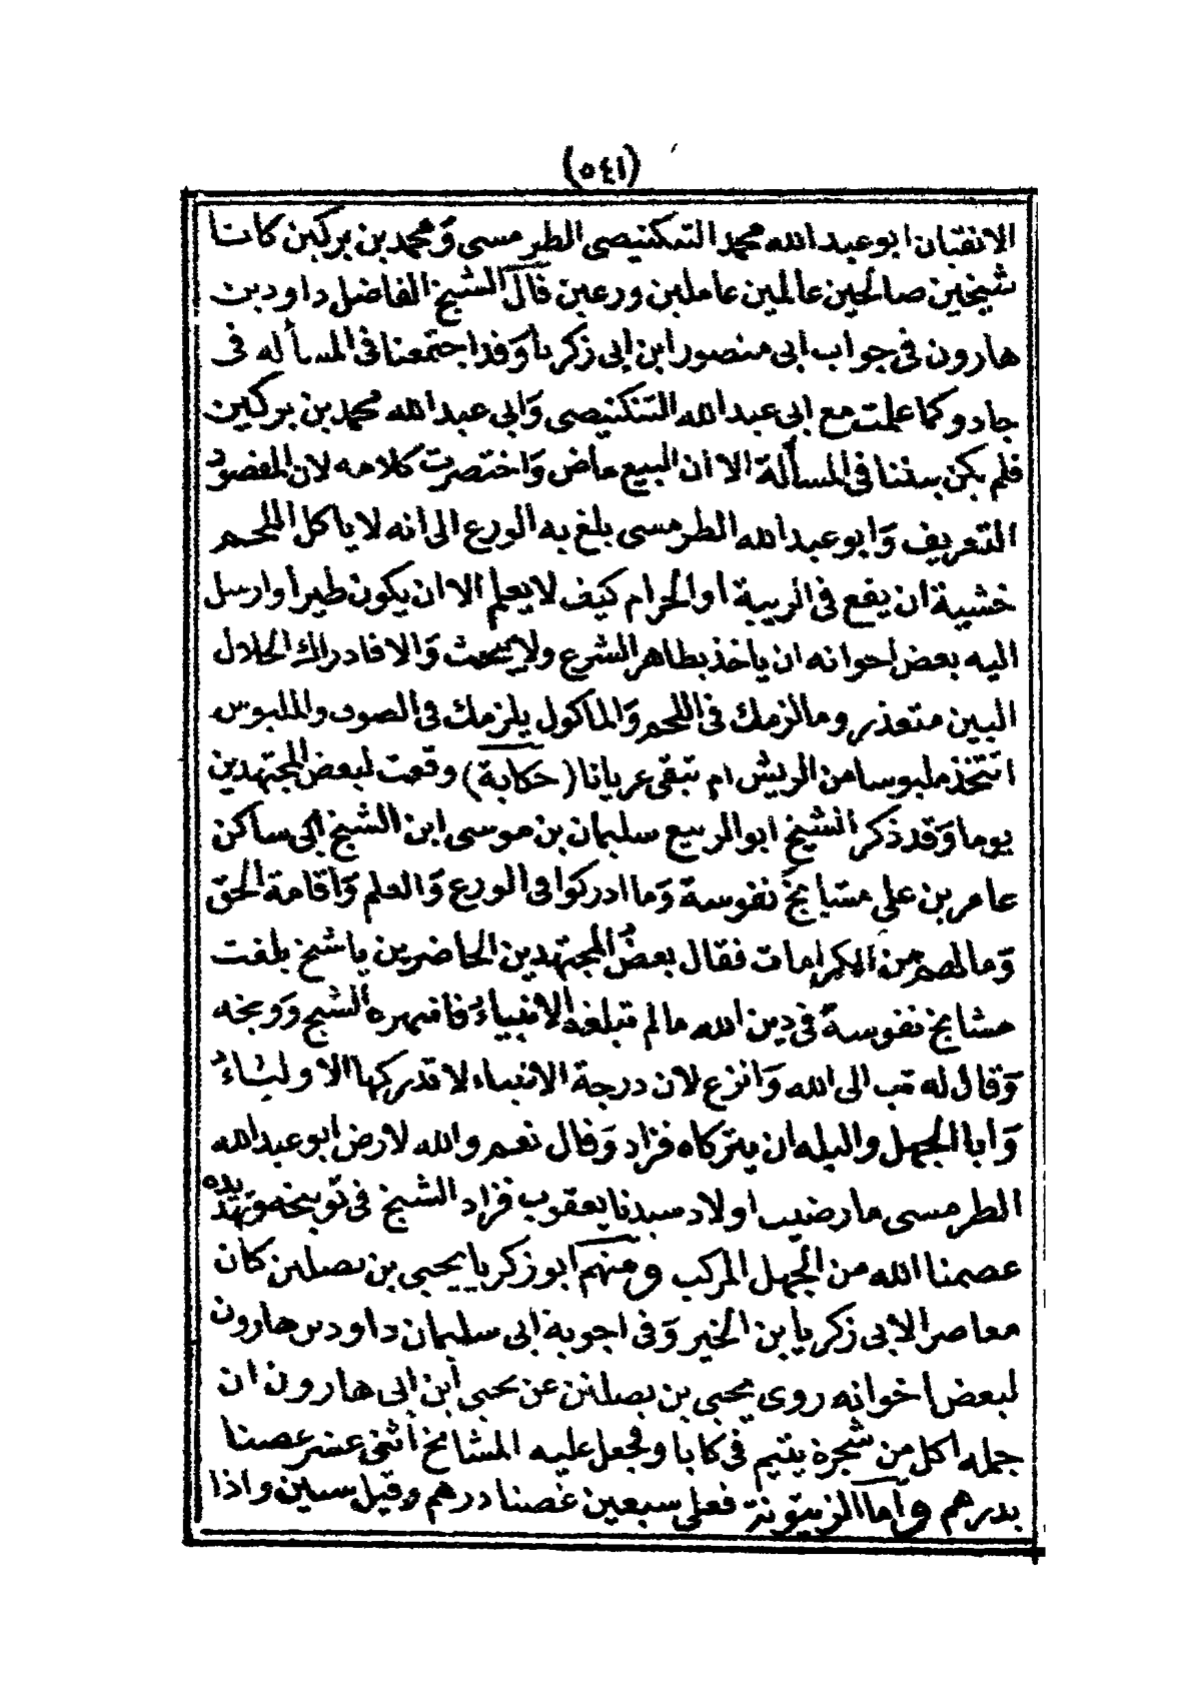 (٥٤١)
الانقتان ابو عبد الله محمد التمكنيصى الطرمسى وَمحمد بن بركين كانا
شيخين صالحين عالمين عاملين ورعين قال الشيخ الفاضل داود بن
هارون فى جواب ابى منصور ابن ابى زكريا وَقد اجتمعنا فى المسأله فى
جادو كما علمت مع ابى عبد الله التنكنيصى وَابى عبد الله محمد بن بركين
فلم يكن بيننا فى المسألة الا ان البيع ماض وَاختصرت كلامه لان المقصود
التعريف وَابو عبد الله الطرمسى بلغ به الورع الى انه لا ياكل اللحم
خشية ان يقع فى الريبة او الحرام كيف لا يعلم الا ان يكون طيرا وارسل
اليه بعض اخوانه ان ياخذ بظاهر الشرع ولا يبحث وَالا فادراك الحلال
البين متعذر وما لزمك فى اللحم وَالماكول يلزمك فى الصوف والملبوس
اتتخذ ملبوسا من الريش ام تبقى عريانا (حكاية) وقعت لبعض المجتهدين
يوما وَقد ذكر الشيخ ابو الربيع سليمان بن موسى ابن الشيخ ابى ساكن
عامر بن على مشايخ نفوسة وَما ادركوا فى الورع وَالعلم وَاقامة الحق
وَما لهم من الكرامات فقال بعضُ المجتهدين الحاضرين يا شيخ بلغت
مشايخ نفوسة فى دين الله ما لم تبلغه الانبياءُ فانتهره الشيخ وَوبخه
وَقال له تب الى الله وَانزع لان درجة الانبياء لا تدركها الاولياءُ
وَابا الجهل والبله ان يتركاه فزاد وَقال نعم والله لارض ابو عبد الله
الطرمسى ما رضيت اولاد سيدنا يعقوب فزاد الشيخ فى توبيخه وتهديده
عصمنا الله من الجهل المركب ومنهم ابو زكريا يحيى بن يصلتن كان
معاصرا لابى زكريا بن الخير وَفى اجوبة ابى سليمان داود بن هارون
لبعض اخوانه روى يحيى بن يصلتن عن يحيى أبن ابى هارون ان
جمله اكل من شجرة يتيم فى كابا و فجعل عليه المشايخ أثنى عشر غصنا
بدرهم وأما الزيتونة فعلى سبعين غصنا درهم وقيل ستين واذا